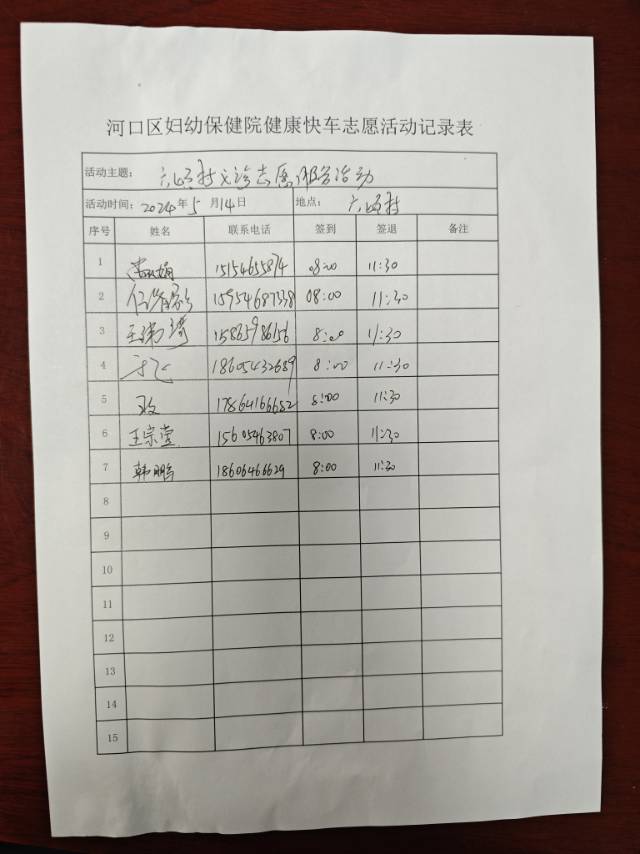 河口区妇幼保健院健康快车志愿活动记录表
活动主题： 六顷村义诊志愿服务活动
活动时间：2024年5月14日 地点： 六顷村
序号 姓名 联系电话 签到 签退 备注
1 15154655874 08:00 11:30
2 15954687338 08:00 11:30
3 王 15865986156 8:00 11:30
4 18605432689 8:00 11:30
5 17864166682 8:00 11:30
6 王宗堂 15605463807 8:00 11:30
7 韩鹏 18606466629 8:00 11:30
8
9
10
11
12
13
14
15